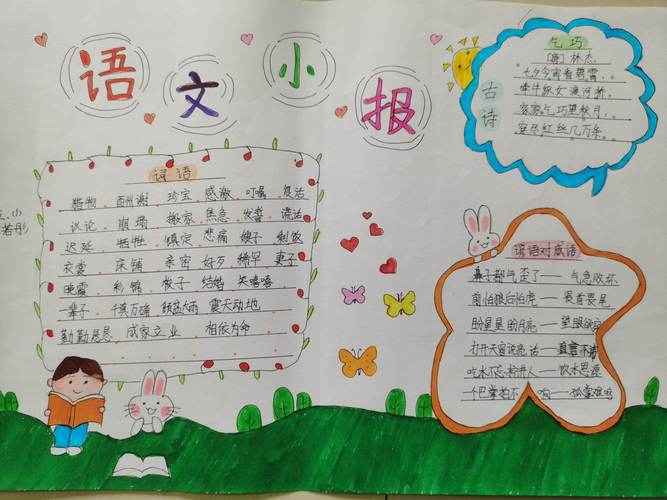 语文小报
词语
猎物 酬谢 珍宝 感激 叮嘱 复活
议论 崩塌 搬家 焦急 发誓 谎话
迟延 牺牲 镇定 悲痛 嫂子 剩饭
衣裳 床铺 亲密 好歹 稍早 妻子
晚霞 彩锦 梭子 结婚 笑嘻嘻
一辈子 千真万确 倾盆大雨 震天动地
勤勤恳恳 成家立业 相依为命
古诗
乞巧
[唐] 林杰
七夕今宵看碧霄,
牵牛织女渡河桥。
家家乞巧望秋月,
穿尽红丝几万条。
谚语对成语
鼻子都气歪了——气急败坏
前怕狼后怕虎——畏首畏尾
盼星星盼月亮——望眼欲穿
打开天窗说亮话——直言不讳
吃水不忘挖井人——饮水思源
一个巴掌拍不响——孤掌难鸣
若彤